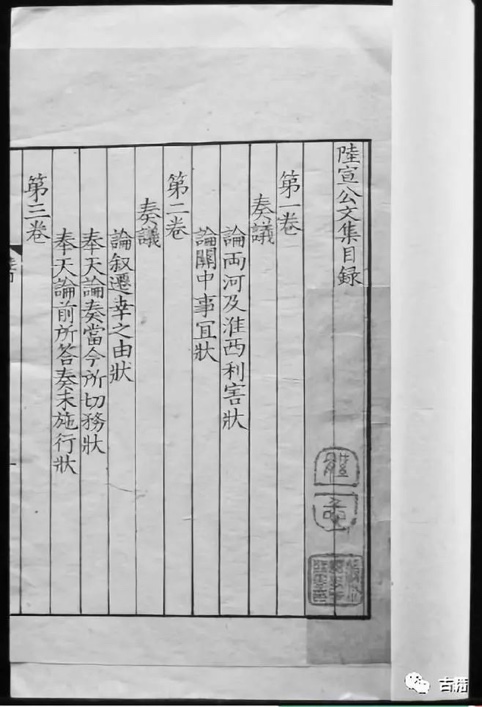 陸宣公文集目録
第一卷
奏議
論両河及淮西利害狀
論關中事宜狀
第二卷
奏議
論叙遷幸之由狀
奉天論奏當今所切務狀
奉天論前所答奏未施行狀
第三卷
古籍